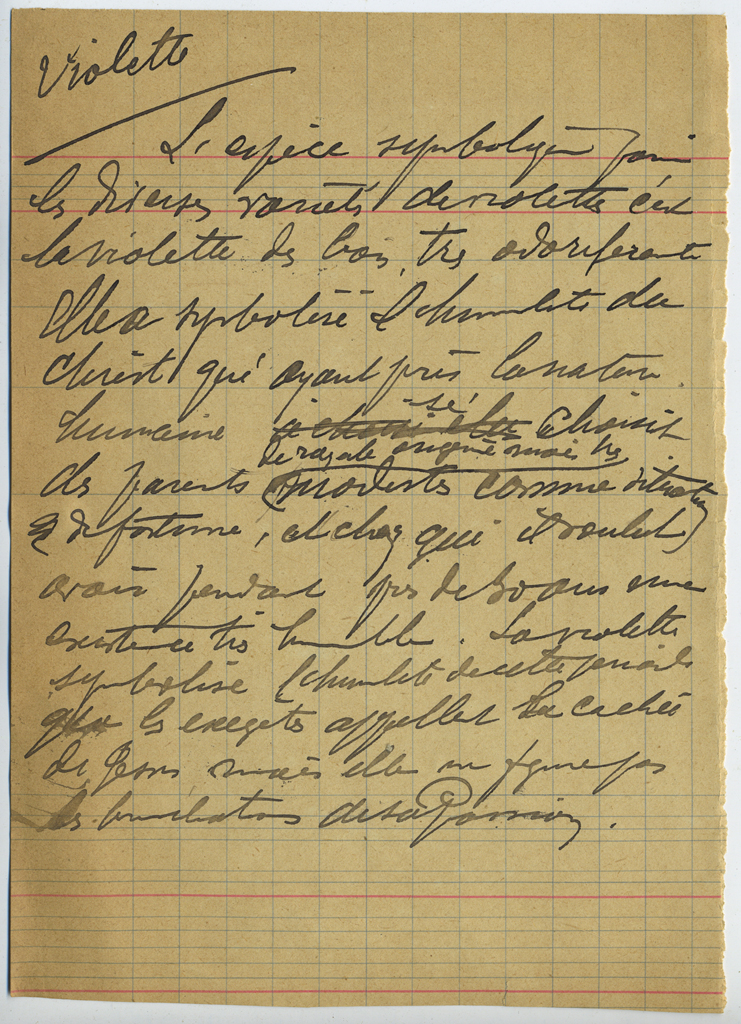 Violette
L'espèce symbolique parmi
les diverses variétés de violettes c'est
la violette des bois, très odoriférante
Elle a symbolisé l'humilité du
Christ qui ayant pris la nature
humaine choisit
de royale origine mais très
des parents modestes comme situation
de fortune, et chez qui il voulut
avoir pendant près de 30 ans une
existence très humble. La violette
symbolise l'humilité de cette période
que les exegètes appellent Vie cachée
de Jésus mais elle ne figure pas
les humiliations de sa Passion.